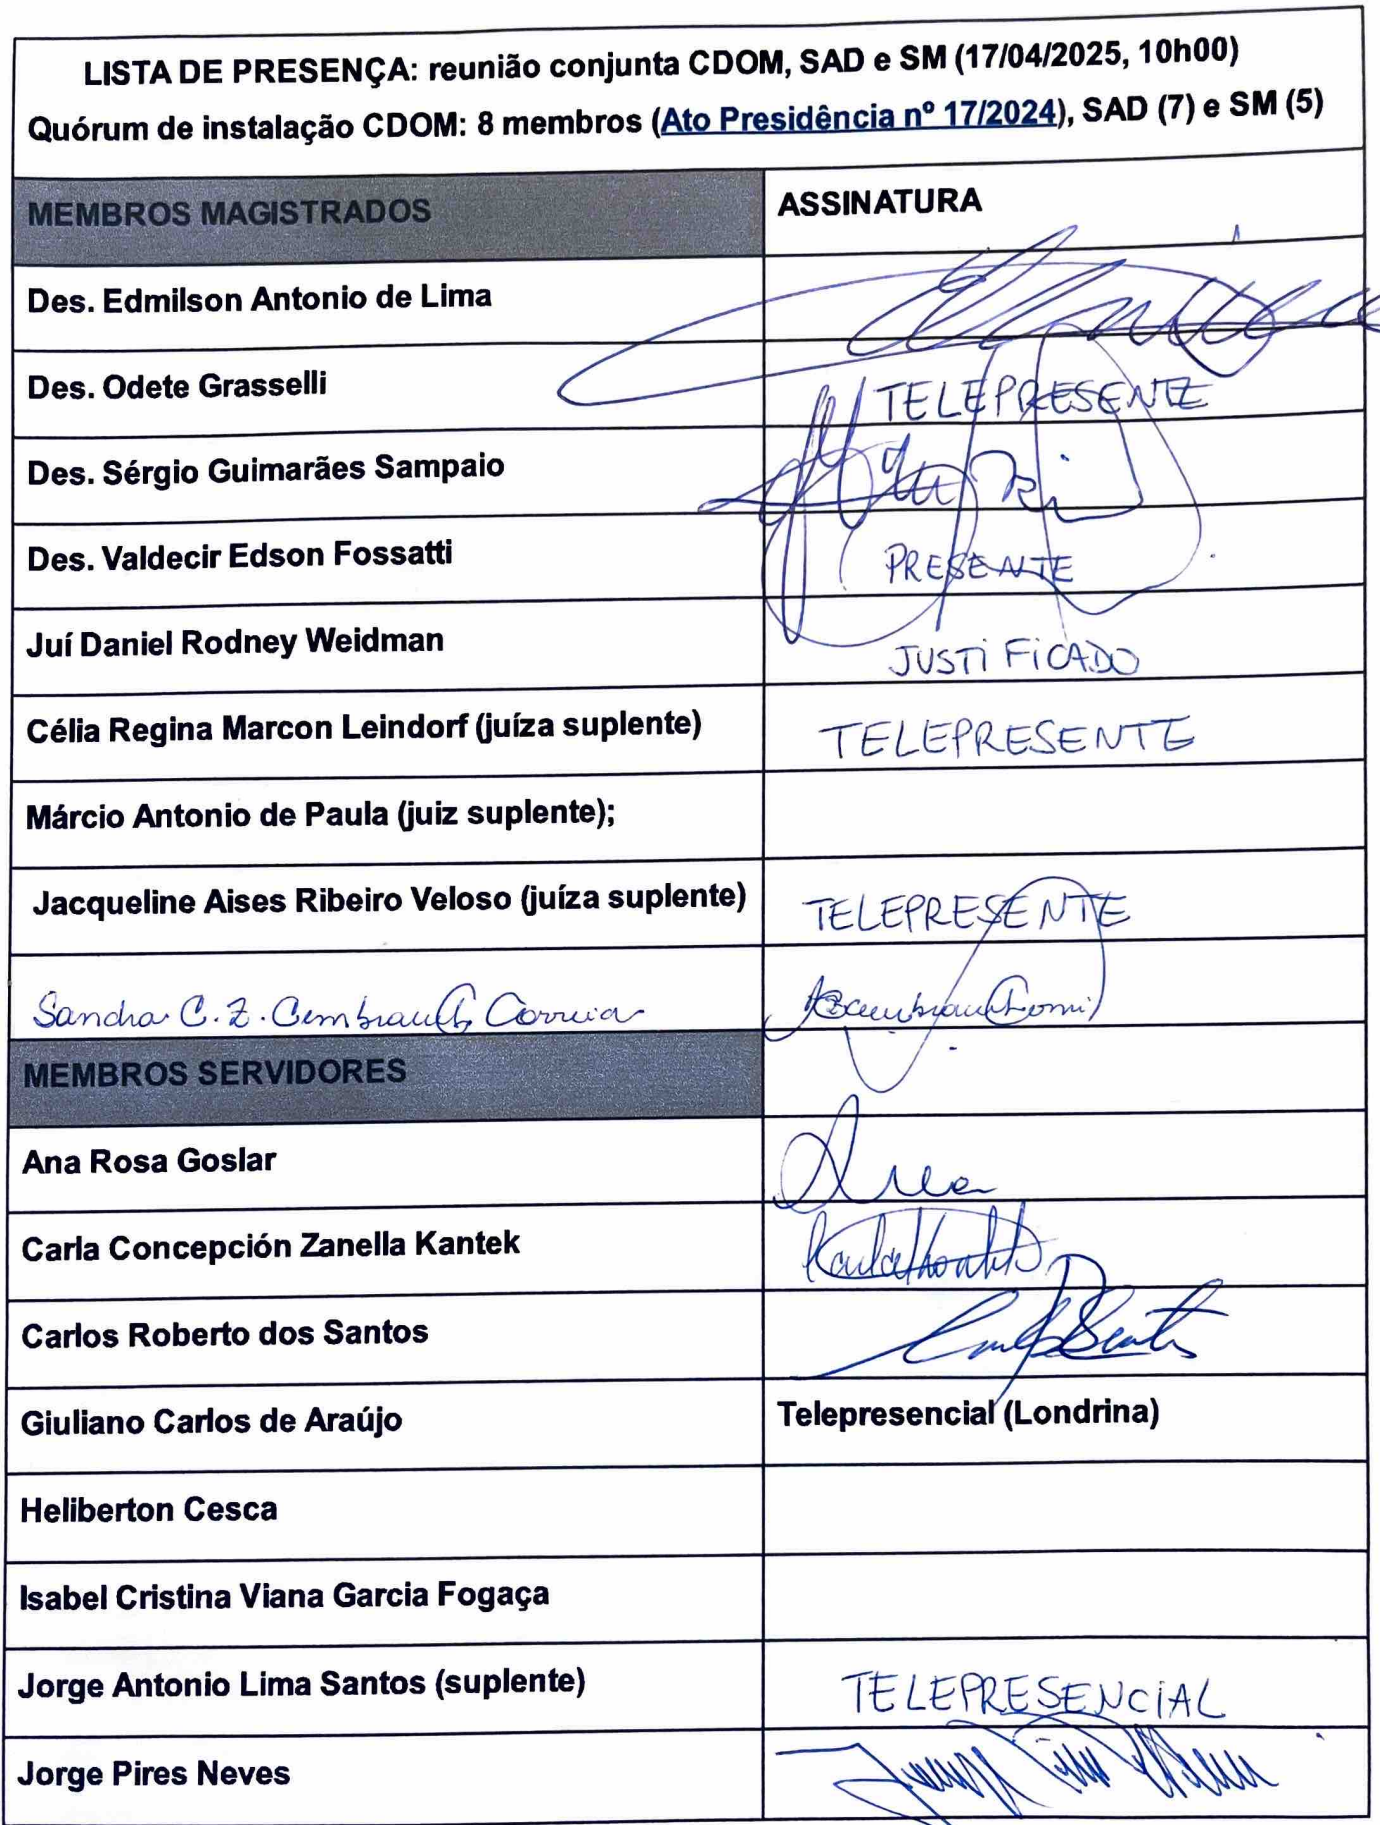 LISTA DE PRESENÇA: reunião conjunta CDOM, SAD e SM (17/04/2025, 10h00)
Quórum de instalação CDOM: 8 membros (Ato Presidência nº 17/2024), SAD (7) e SM (5)
MEMBROS MAGISTRADOS ASSINATURA
Des. Edmilson Antonio de Lima
Des. Odete Grasselli TELEPRESENTE
Des. Sérgio Guimarães Sampaio
Des. Valdecir Edson Fossatti PRESENTE
Juí Daniel Rodney Weidman JUSTIFICADO
Célia Regina Marcon Leindorf (juíza suplente) TELEPRESENTE
Márcio Antonio de Paula (juiz suplente);
Jacqueline Aises Ribeiro Veloso (juíza suplente) TELEPRESENTE
Sandra C. Z. Cembrau Correia
MEMBROS SERVIDORES
Ana Rosa Goslar
Carla Concepción Zanella Kantek
Carlos Roberto dos Santos
Giuliano Carlos de Araújo Telepresencial (Londrina)
Heliberton Cesca
Isabel Cristina Viana Garcia Fogaça
Jorge Antonio Lima Santos (suplente) TELEPRESENCIAL
Jorge Pires Neves